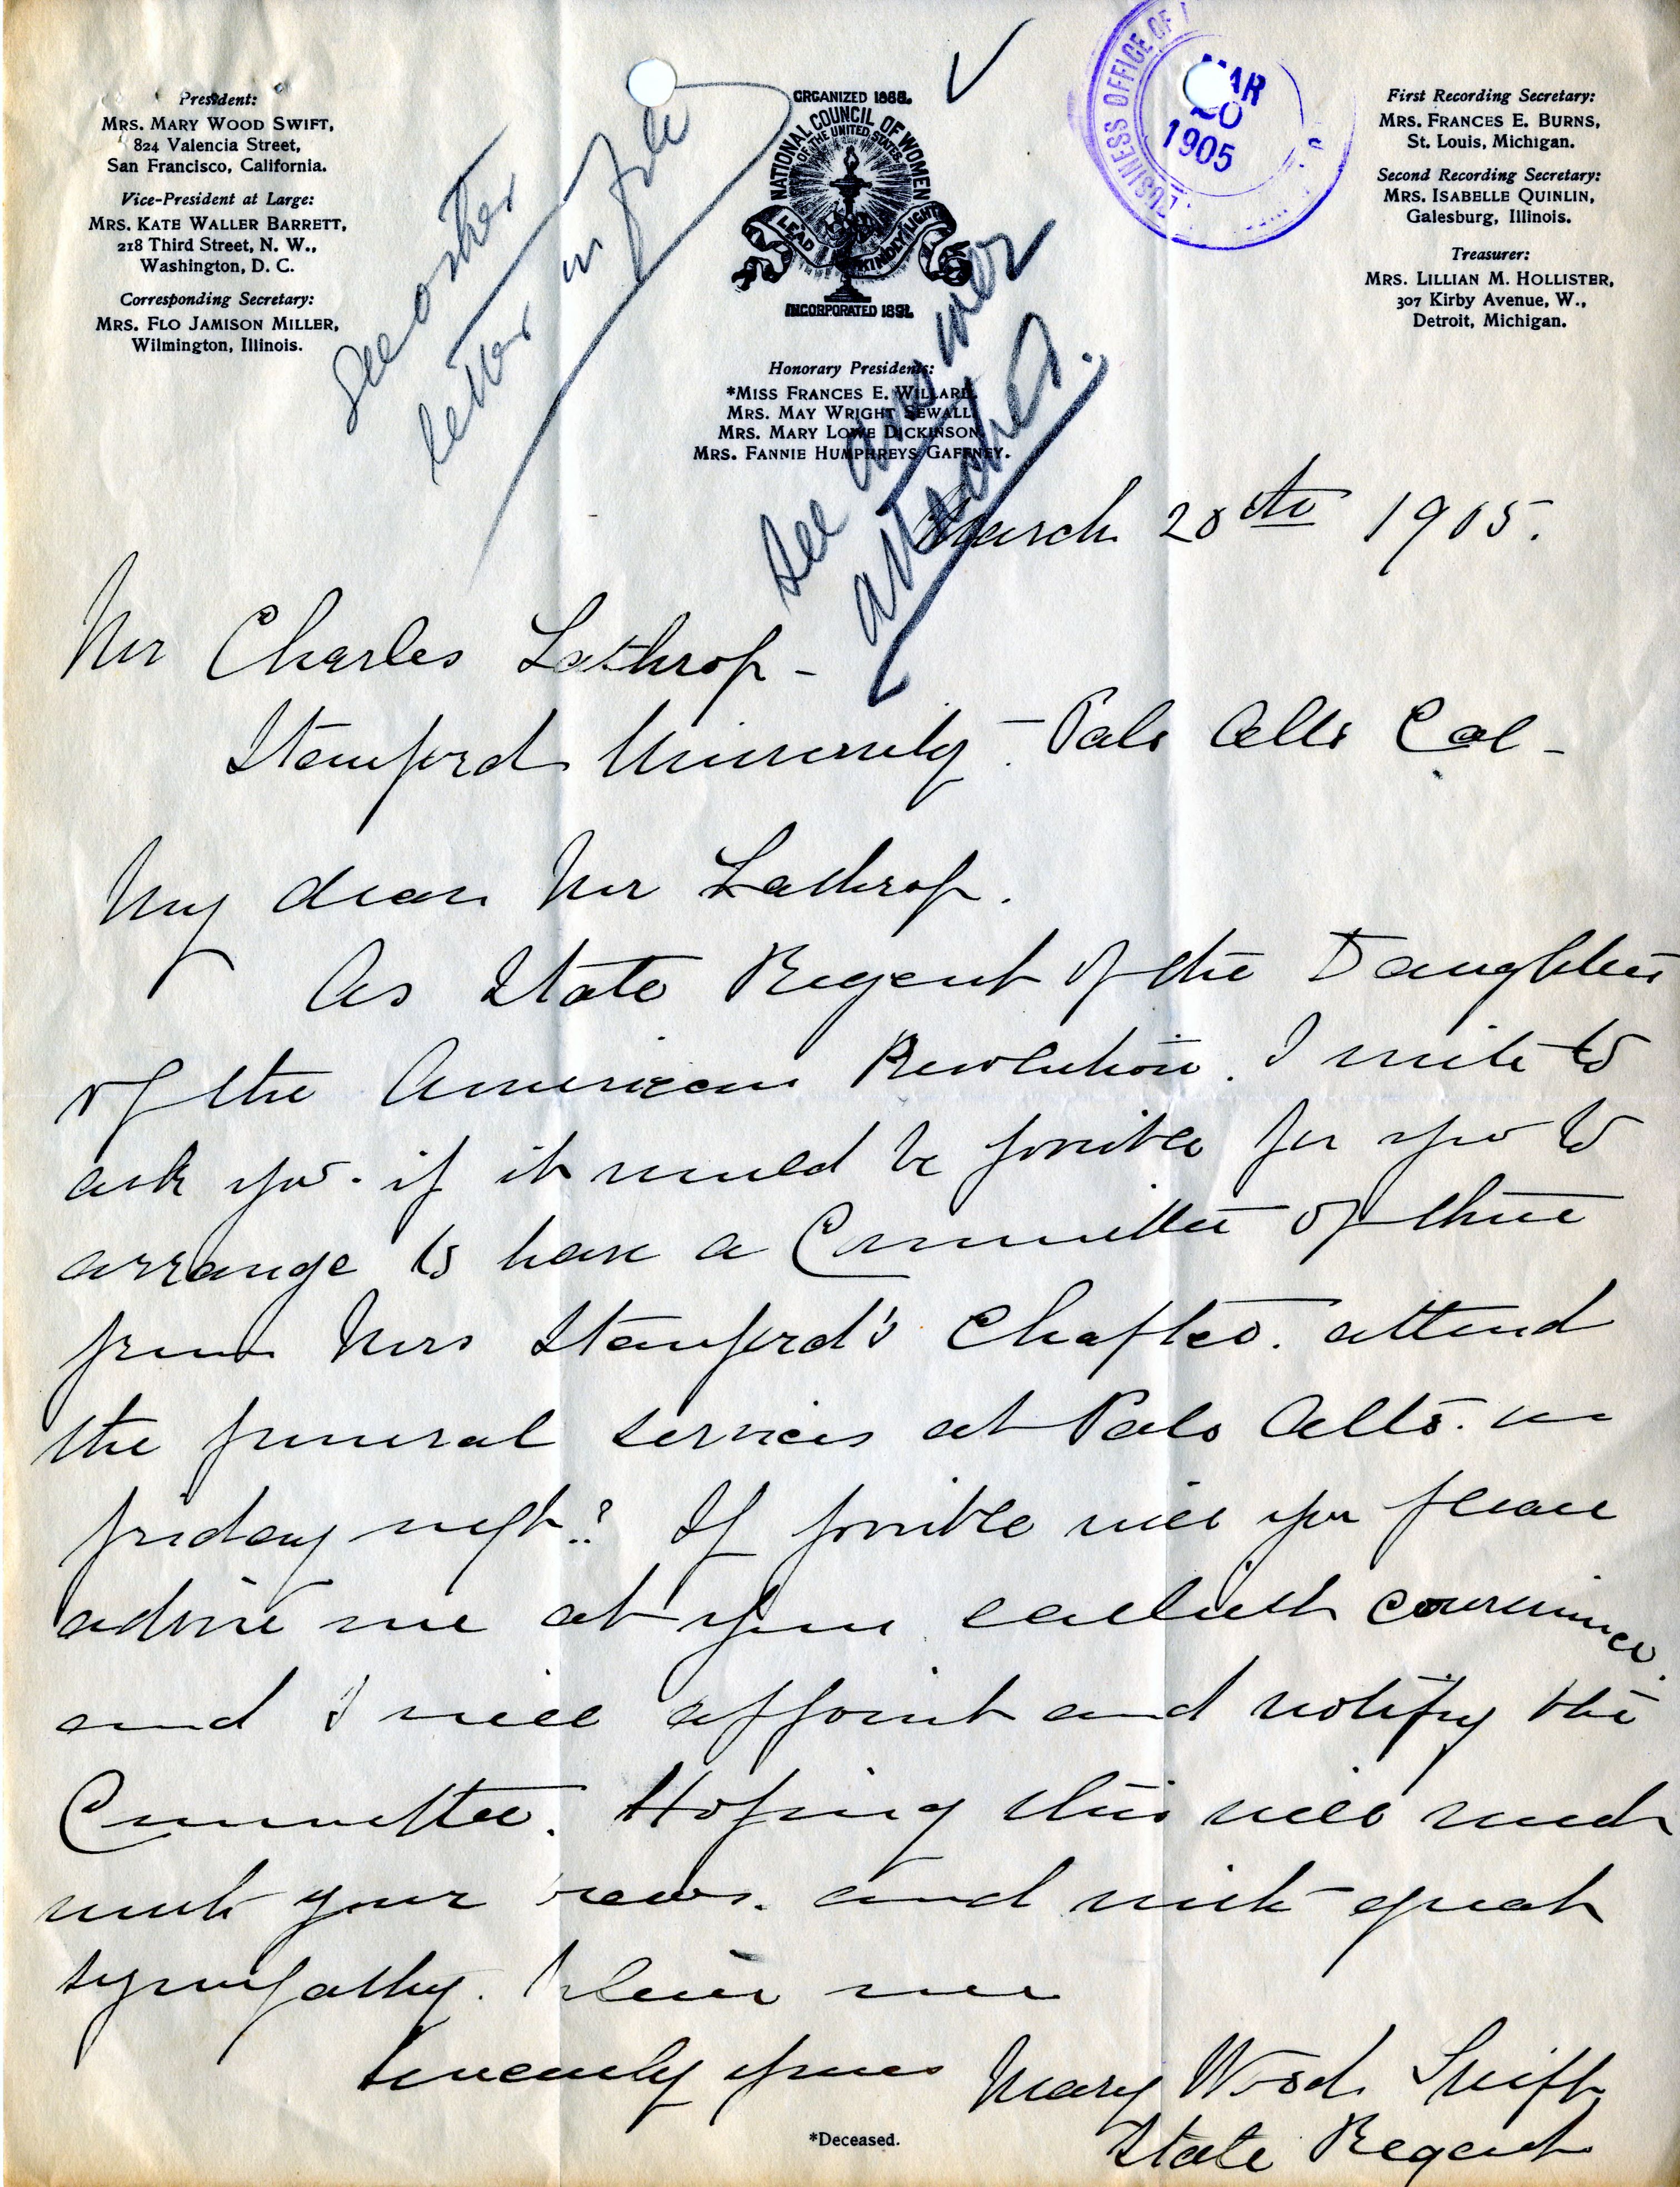 President:
MRS. MARY WOOD SWIFT,
824 Valencia Street,
San Francisco, California.
Vice-President at Large:
MRS. KATE WALLER BARRETT,
218 Third Street, N. W.,
Washington, D. C.
Corresponding Secretary:
MRS. FLO JAMISON MILLER,
Wilmington, Illinois.
see other
letter in file
ORGANIZED 1888.
NATIONAL COUNCIL OF WOMEN
OF THE UNITED STATES
LEAD KINDLY LIGHT
INCORPORATED 1891.
Honorary Presidents:
*MISS FRANCES E. WILLARD,
MRS. MAY WRIGHT SEWALL,
MRS. MARY LOWE DICKINSON,
MRS. FANNIE HUMPHREYS GAFFNEY.
see answer
attached.
BUSINESS OFFICE OF
MAR
20
1905
First Recording Secretary:
MRS. FRANCES E. BURNS,
St. Louis, Michigan.
Second Recording Secretary:
MRS. ISABELLE QUINLIN,
Galesburg, Illinois.
Treasurer:
MRS. LILLIAN M. HOLLISTER,
307 Kirby Avenue, W.,
Detroit, Michigan.
March 20th 1905.
Mr Charles Lathrop -
Stanford University - Palo Alto Cal -
My dear Mr Lathrop.
As State Regent of the Daughters
of the American Revolution. I write to
ask you. if it would be possible for you to
arrange to have a Committee of three
from Mrs Stanford's Chapter. attend
the funeral services at Palo Alto. on
friday next? If possible will you please
advise me at your earliest convenience.
and I will appoint and notify the
Committee. Hoping this will meet
with your views. and with great
sympathy. Believe me
Sincerely yours Mary Wood Swift
State Regent
*Deceased.